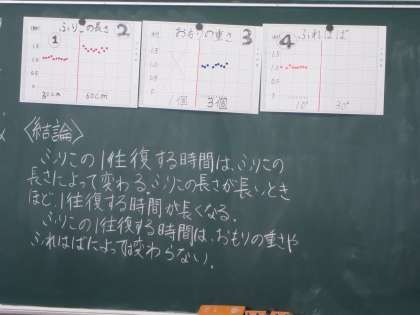 ふりこの長さ 2
①
1.5
1.0
0.5
0
30cm 60cm
おもりの重さ 3
1.5
1.0
0.5
0
1個 3個
4 ふれはば
1.5
1.0
0.5
0
10° 30°
〈結論〉
ふりこの1往復する時間は、ふりこの
長さによって変わる。ふりこの長さが長いとき
ほど、1往復する時間が長くなる。
ふりこの1往復する時間は、おもりの重さや
ふれはばによっては変わらない。